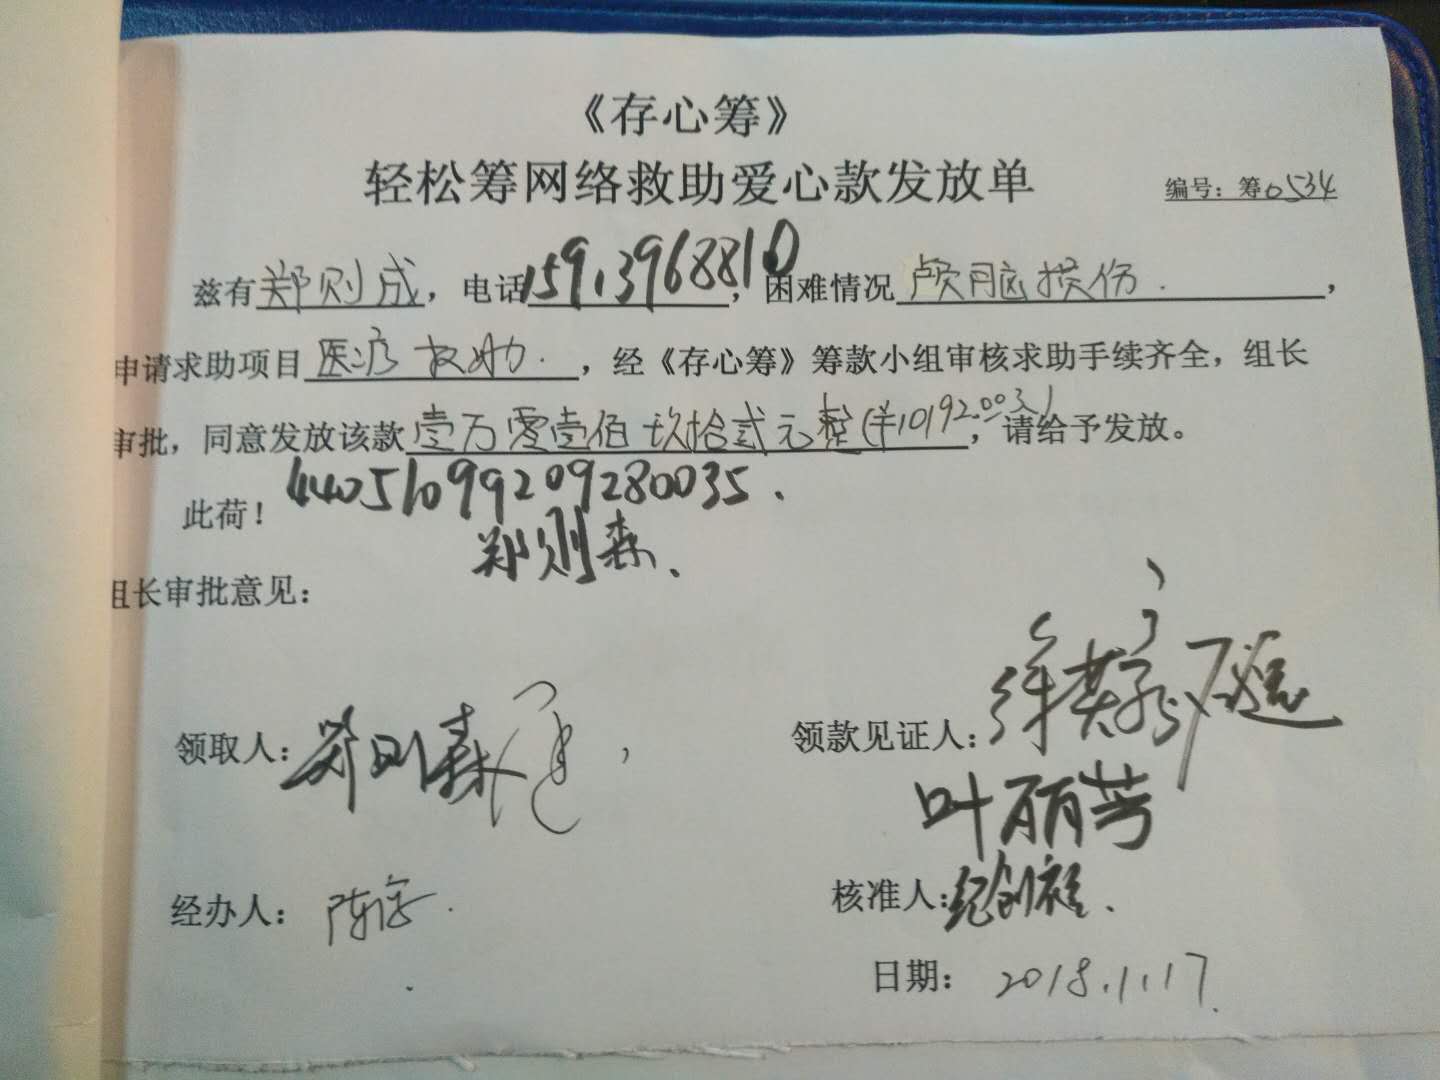 《存心筹》
轻松筹网络救助爱心款发放单
编号：筹0534
兹有郑则成，电话15913968810，困难情况颅脑损伤．，
申请求助项目医疗救助．，经《存心筹》筹款小组审核求助手续齐全，组长
审批，同意发放该款壹万零壹佰玖拾贰元整(￥10192.00元)，请给予发放。
此荷！
440510199209280035．
郑则森．
组长审批意见：
领取人：郑则森
领款见证人：
叶丽芳
经办人：陈
核准人：纪创
日期：2018.1.17.